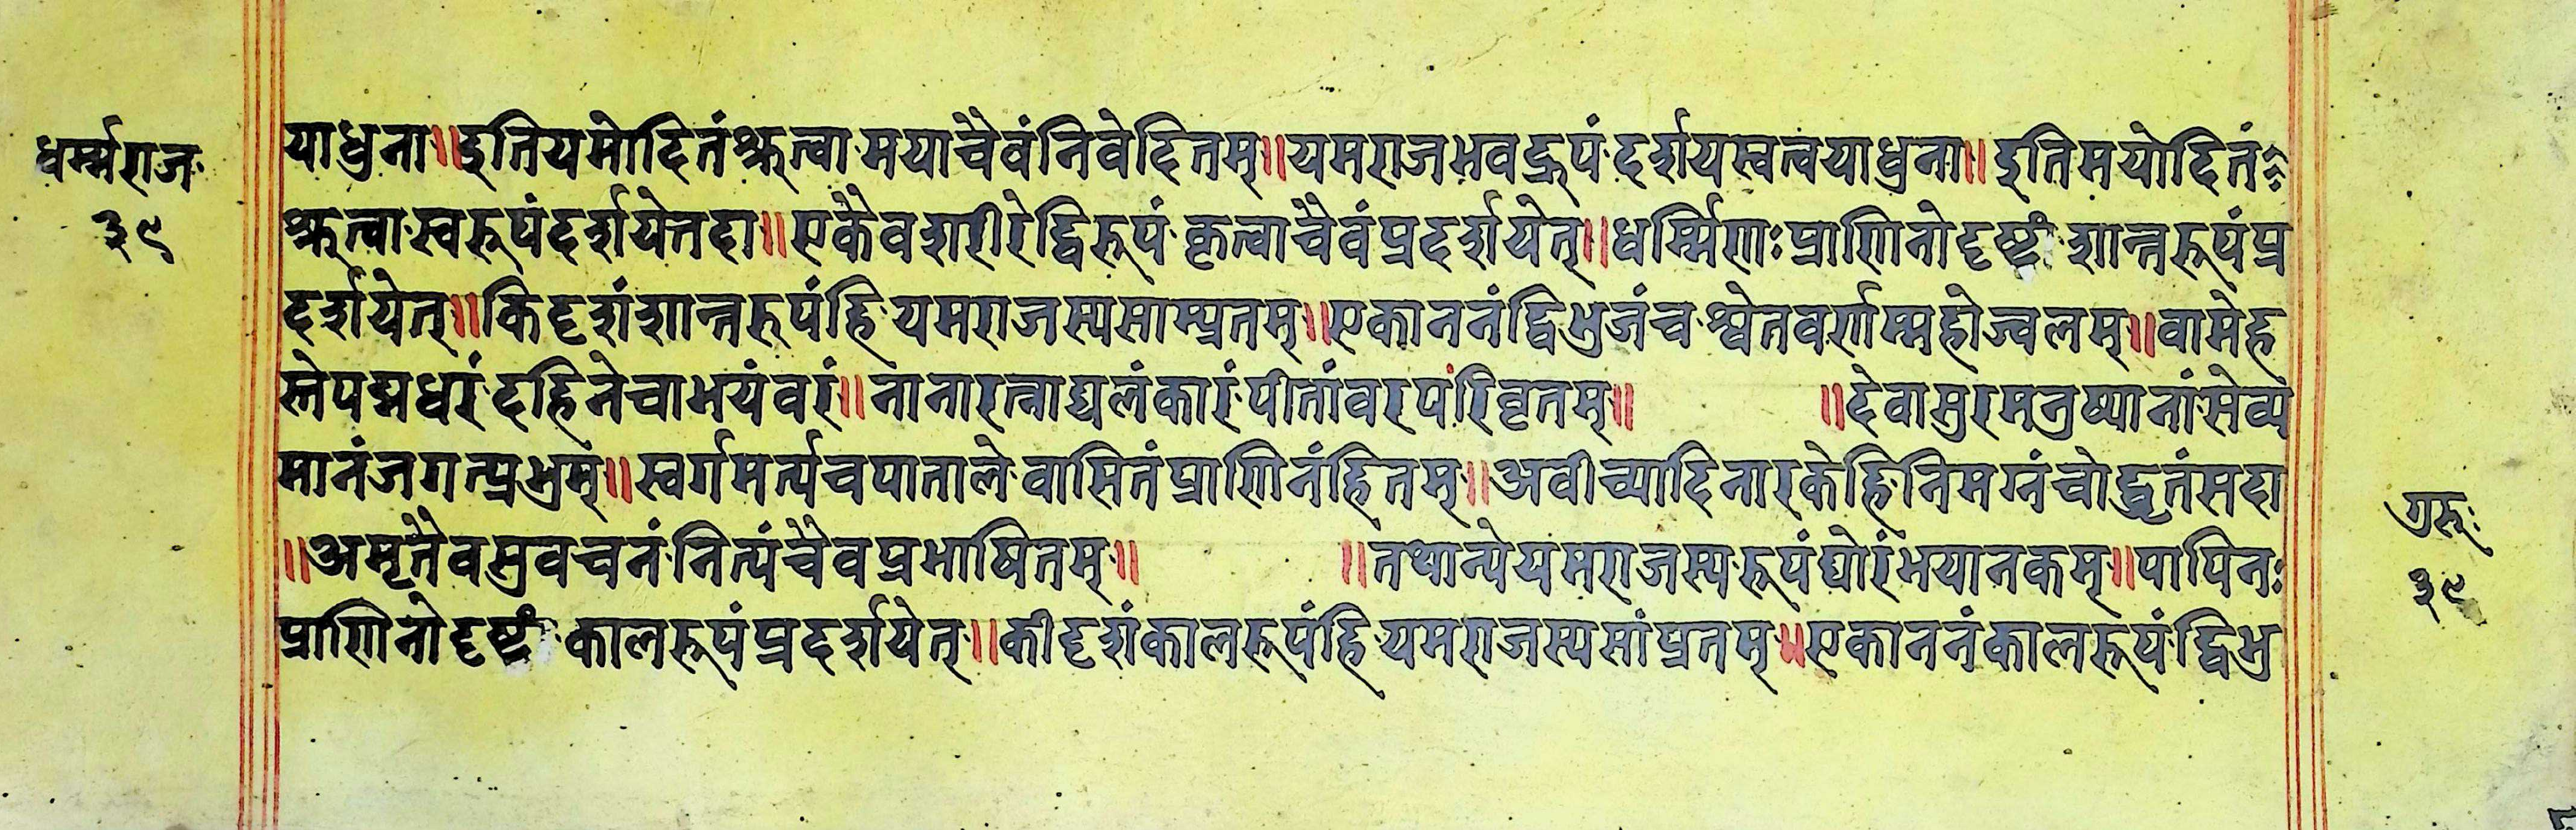 धर्म्मराज
३९
याधुना॥इतियमोदितंश्रुत्वामयाचैवंनिवेदितम्॥यमराजभवद्रूपंदर्शयस्वत्वयाधुना॥इतिमयोदितं
श्रुत्वास्वरूपंदर्शयेत्तदा॥एकैवशरीरेद्विरूपंकृत्वाचैवंप्रदर्शयेत्॥धर्म्मिणःप्राणिनोदृष्टं शान्तरूपंप्र
दर्शयेत्॥किदृशंशान्तरुपंहियमराजस्यसाम्प्रतम्॥एकाननंद्विभुजंचश्वेतवर्णम्महोज्वलम्॥वामेह
स्तेपद्मधरंदहिनेचाभयंवरं॥नानारत्नाद्यलंकारंपीतांवरपरिवृतम्॥ ॥देवासुरमनुष्यानांसेव्य
मानंजगत्प्रभुम्॥स्वर्गमर्त्यचपातालेवासितंप्राणिनंहितम्॥अवीच्यादिनारकेहिनिमग्नंचोद्धृतंसदा
॥अमृतैवसुवचनंनित्यंचैवप्रभाषितम्॥ ॥तथान्येयमराजस्यरूपंघोरंभयानकम्॥पापिनः
प्राणिनोदृष्टं कालरूपंप्रदर्शयेत्॥कीदृशंकालरूपंहियमराजस्यसांप्रतम्॥एकाननंकालरूपंद्विभु
गुरुः
३९